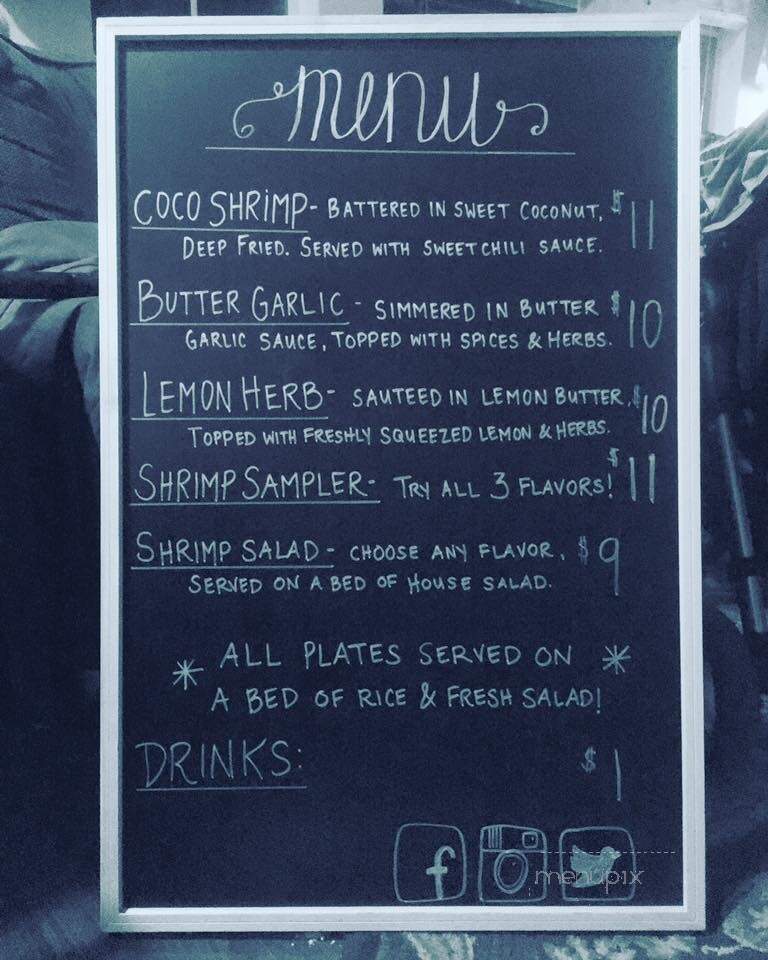 menu
COCO SHRIMP - BATTERED IN SWEET COCONUT, $11
DEEP FRIED. SERVED WITH SWEET CHILI SAUCE.
BUTTER GARLIC - SIMMERED IN BUTTER $10
GARLIC SAUCE, TOPPED WITH SPICES & HERBS.
LEMON HERB - SAUTEED IN LEMON BUTTER, $10
TOPPED WITH FRESHLY SQUEEZED LEMON & HERBS.
SHRIMP SAMPLER - TRY ALL 3 FLAVORS! $11
SHRIMP SALAD - CHOOSE ANY FLAVOR, $9
SERVED ON A BED OF HOUSE SALAD.
* ALL PLATES SERVED ON *
A BED OF RICE & FRESH SALAD!
DRINKS: $1
f
menupix